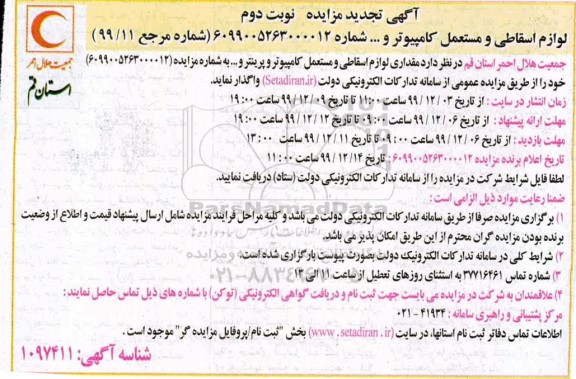 آگهی تجدید مزایده نوبت دوم
لوازم اسقاطی و مستعمل کامپیوتر و ... شماره 6099005263000012 (شماره مرجع 11/ 99)
جمعیت هلال احمر
استان قم
جمعیت هلال احمر استان قم در نظر دارد مقداری لوازم اسقاطی و مستعمل کامپیوتر و پرینتر و... به شماره مزایده (6099005263000012)
خود را از طریق مزایده عمومی از سامانه تدارکات الکترونیکی دولت (Setadiran.ir) واگذار نماید.
زمان انتشار در سایت : از تاریخ 03 / 12 / 99 ساعت 11:00 تا تاریخ 09 / 12 / 99 ساعت 19:00
مهلت ارائه پیشنهاد : از تاریخ 06 / 12 / 99 ساعت 09:00 تا تاریخ 12 / 12 / 99 ساعت 19:00
مهلت بازدید : از تاریخ 06 / 12 / 99 ساعت 09:00 تا تاریخ 11 / 12 / 99 ساعت 13:00
تاریخ اعلام برنده مزایده 6099005263000012 : تاریخ 14 / 12 / 99 ساعت 11:00
لطفا فایل شرایط شرکت در مزایده را از سامانه تدارکات الکترونیکی دولت (ستاد) دریافت نمایید.
ضمنا رعایت موارد ذیل الزامی است :
1) برگزاری مزایده صرفا از طریق سامانه تدارکات الکترونیکی دولت می باشد و کلیه مراحل فرایند مزایده شامل ارسال پیشنهاد قیمت و اطلاع از وضعیت
برنده بودن مزایده گران محترم از این طریق امکان پذیر می باشد.
2) شرایط کلی در سامانه تدارکات الکترونیک دولت بصورت پیوست بارگزاری شده است.
3) شماره تماس 37716461 به استثنای روزهای تعطیل از ساعت 11 الی 12
4) علاقمندان به شرکت در مزایده می بایست جهت ثبت نام و دریافت گواهی الکترونیکی (توکن) با شماره های ذیل تماس حاصل نمایند :
مرکز پشتیبانی و راهبری سامانه : 41934 - 021
اطلاعات تماس دفاتر ثبت نام استانها، در سایت (www.setadiran.ir) بخش "ثبت نام/پروفایل مزایده گر" موجود است .
شناسه آگهی: 1097411
ParsNamadData